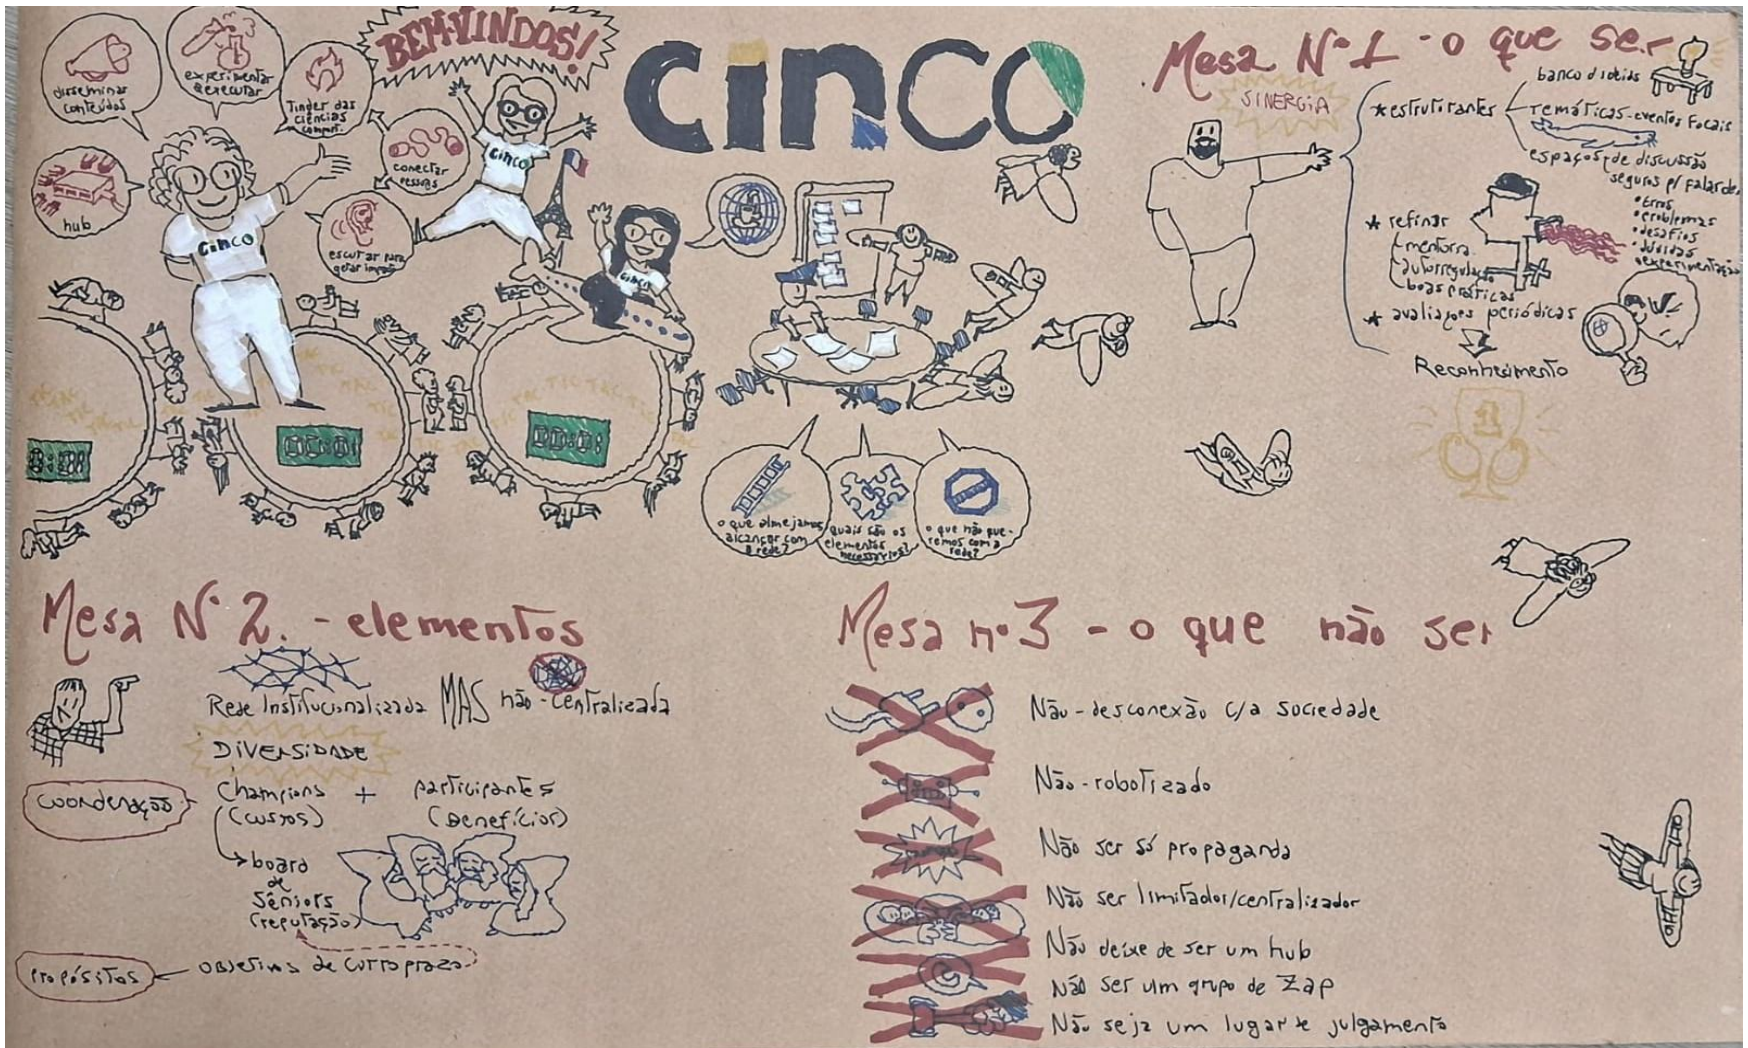 BEM-VINDOS!
cinco
disseminar
conteúdos
experimentar
e executar
Tinder das
ciências
comport.
conectar
pessoas
hub
escutar para
gerar impacto
CINCO
CINCO
CINCO
TIC TAC
00:01
00:01
o que almejamos
alcançar com
a rede?
quais são os
elementos
necessários?
o que não que-
remos com a
rede?
Mesa Nº1 - o que ser
SINERGIA
* estruturantes
banco d ideias
temáticas-eventos focais
espaços de discussão
seguros p/ falar de.
• Erros
• problemas
• desafios
• dúvidas
• experimentação
* refinar
mentoria
autorregulação
boas práticas
* avaliações periódicas
Reconhecimento
1
Mesa Nº2. - elementos
Rede Institucionalizada MAS não-centralizada
DIVERSIDADE
coordenação
Champions + participantes
(custos) (Benefícios)
board
de
Sêniors
(reputação)
propósitos
objetivos de curto prazo
Mesa nº3 - o que não ser
Não-desconexão c/a sociedade
Não-robotizado
Não ser só propaganda
Não ser limitador/centralizador
Não deixe de ser um hub
Não ser um grupo de Zap
Não seja um lugar de julgamento